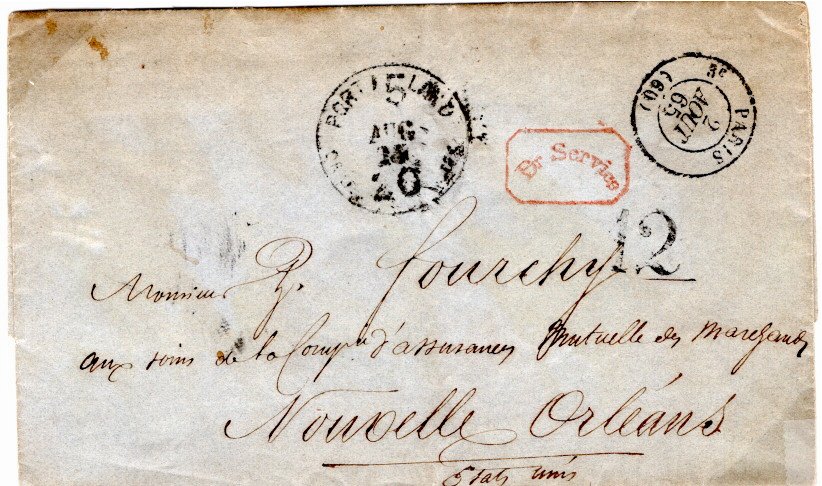 PORTLAND
5
AUG
15
20
Br Service
PARIS
3e
2
AOUT
65
(60)
12
Monsieur P. Fourchy
aux soins de la Compie d'assurances Mutuelle des Marchands
Nouvelle Orléans
Etats unis